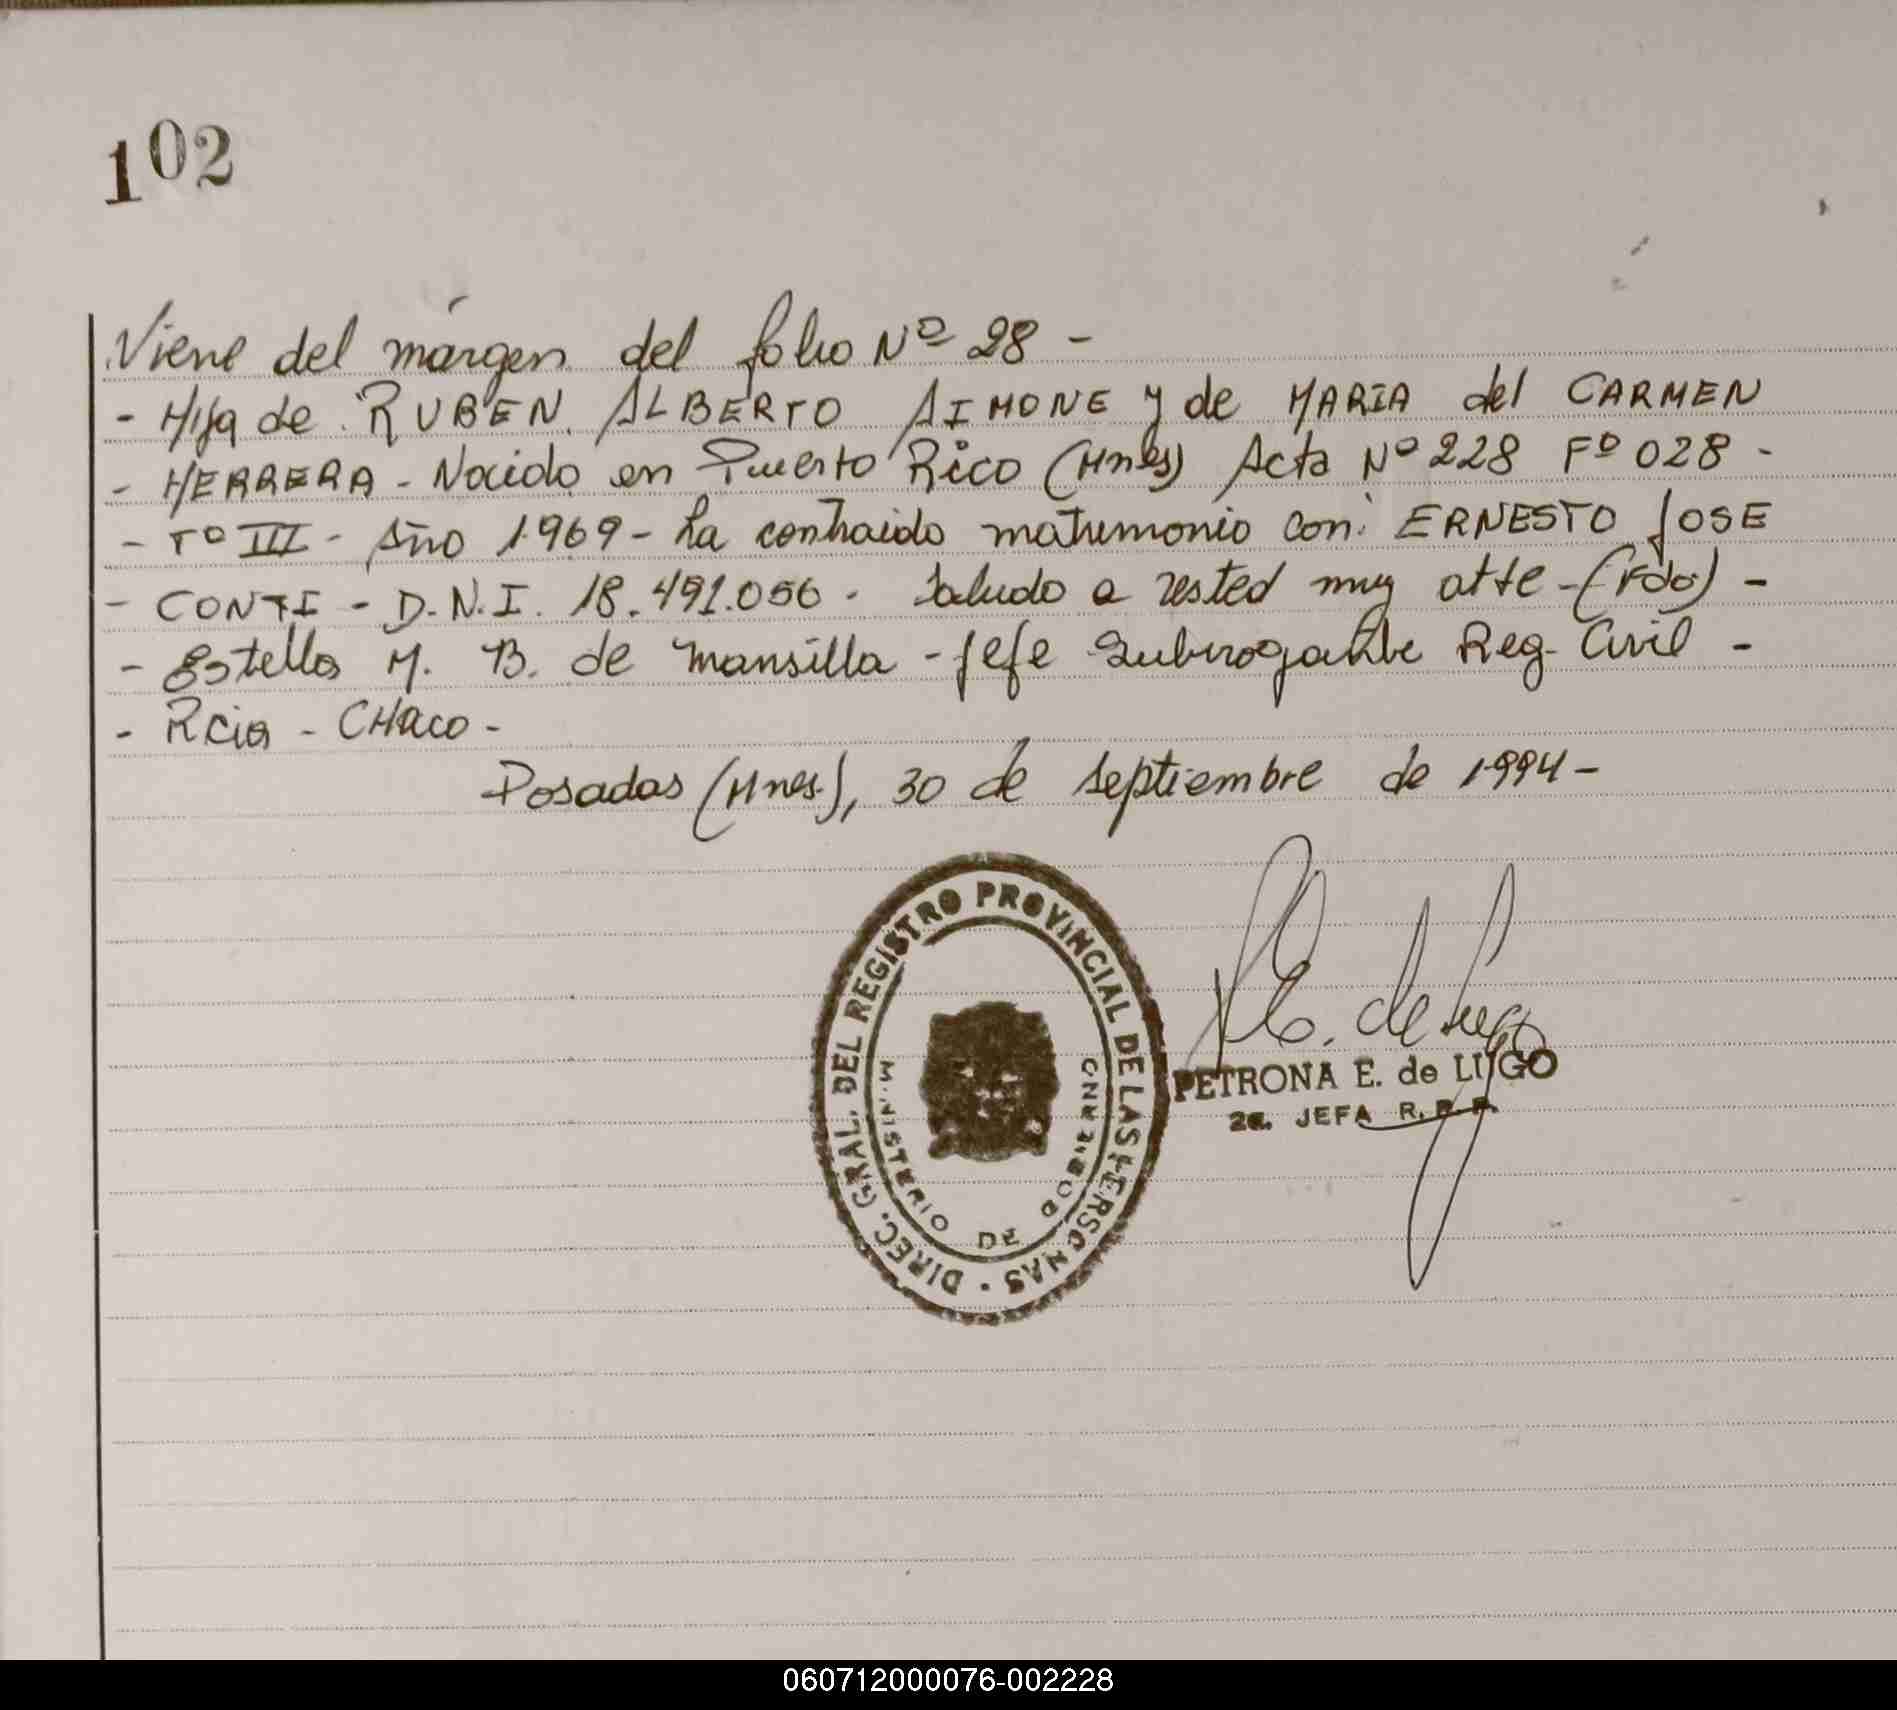 102
Viene del márgen del folio Nº 28 -
- Hija de RUBEN ALBERTO AIMONE y de MARIA del CARMEN
- HERRERA - Nacida en Puerto Rico (Mnes) Acta Nº 228 Fº 028 -
- Tº III - Año 1969 - ha contraido matrimonio con: ERNESTO JOSE
- CONTI - D.N.I. 18.491.056 - Saludo a usted muy atte - (Fdo) -
- Estella M. B. de Mansilla - Jefe Subrogante Reg. Civil -
- Rcia - CHaco -
Posadas (Mnes.), 30 de septiembre de 1994 -
DIREC. GRAL. DEL REGISTRO PROVINCIAL DE LAS PERSONAS
MINISTERIO DE GOBIERNO
P E. de Lugo
PETRONA E. de LUGO
2a. JEFA R. P. P.
060712000076-002228